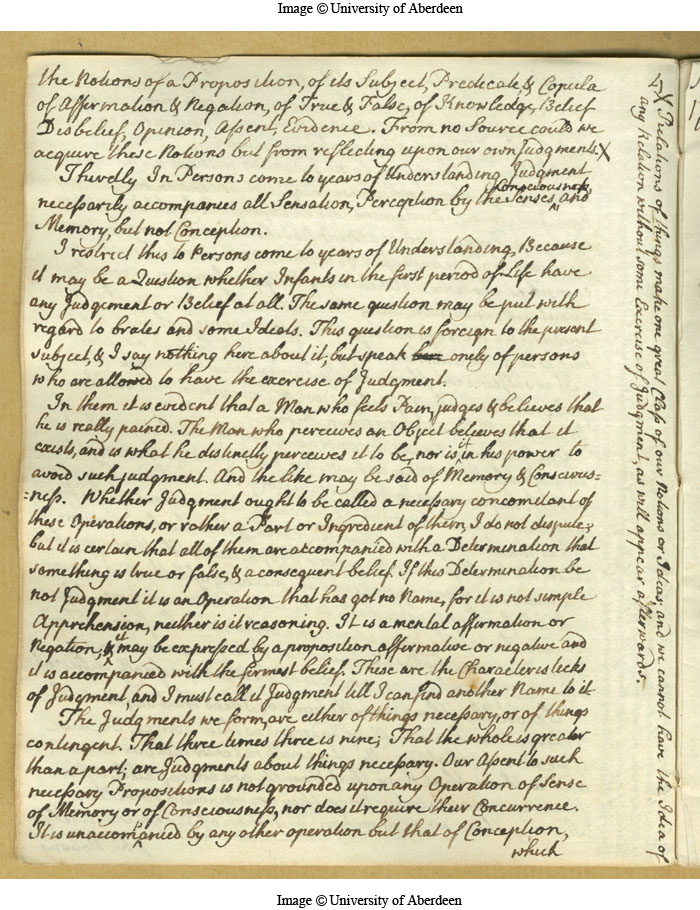 Image © University of Aberdeen
the Notions of a Proposition, of its Subject, Predicate, & Copula
of Affirmation & Negation, of True & False, of Knowledge, Belief
Disbelief, Opinion, Assent, Evidence. From no Source could we
acquire these Notions but from reflecting upon our own Judgments X
Thirdly In Persons come to years of Understanding, Judgment
necessarily accompanies all Sensation, Perception by the Senses, Consciousness, and
Memory, but not Conception.
I restrict this to Persons come to years of Understanding, Because
it may be a Question whether Infants in the first period of Life have
any Judgement or Belief at all. The same question may be put with
regard to brutes and some Ideots. This question is foreign to the present
subject, & I say nothing here about it, but speak onely of persons
who are allowed to have the exercise of Judgment.
In them it is evident that a Man who feels Pain, judges & believes that
he is really pained. The Man who perceives an Object believes that it
exists, and is what he distinctly perceives it to be, nor is it in his power to
avoid such judgment. And the like may be said of Memory & Conscious=
=ness. Whether Judgment ought to be called a necessary concomitant of
these Operations, or rather a Part or Ingredient of them, I do not dispute;
but it is certain that all of them are accompanied with a Determination that
something is true or false, & a consequent belief. If this Determination be
not Judgment it is an Operation that has got no Name, for it is not simple
Apprehension, neither is it reasoning. It is a mental affirmation or
Negation, it may be expressed by a proposition affirmative or negative and
it is accompanied with the firmest belief. These are the Characteristicks
of Judgment, and I must call it Judgment till I can find another Name to it
The Judgments we form, are either of things necessary, or of things
contingent. That three times three is nine; That the whole is greater
than a part; are Judgments about things necessary. Our Assent to such
necessary Propositions is not grounded upon any Operation of Sense
of Memory or of Consciousness, nor does it require their Concurrence.
It is unaccompanied by any other operation but that of Conception,
which
X Relations of things make one great Class of our Notions or Ideas; and we cannot have the Idea of
any Relation without some Exercise of Judgment, as will appear afterwards.
Image © University of Aberdeen